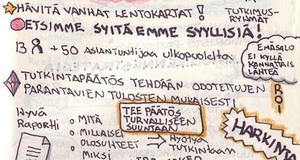 HÄVITÄ VANHAT LENTOKARTAT!
TUTKIMUS-
RYHMÄT
ETSIMME SYITÄ EMME SYYLLISIÄ!
+ 50 ASIANTUNTIJAA ULKOPUOLELTA
EMÄSALO
EI KYLLÄ
KANNATTAIS
LÄHTEÄ
TUTKINTAPÄÄTÖS TEHDÄÄN ODOTETTUJEN
PARANTAVIEN TULOSTEN MUKAISESTI
TEE PÄÄTÖS
TURVALLISEEN
SUUNTAAN
HYVÄ
RAPORTTI
MITÄ
MILLAISET
OLOSUHTEET
MIKSI
TUTKINTAAN
HARKINT